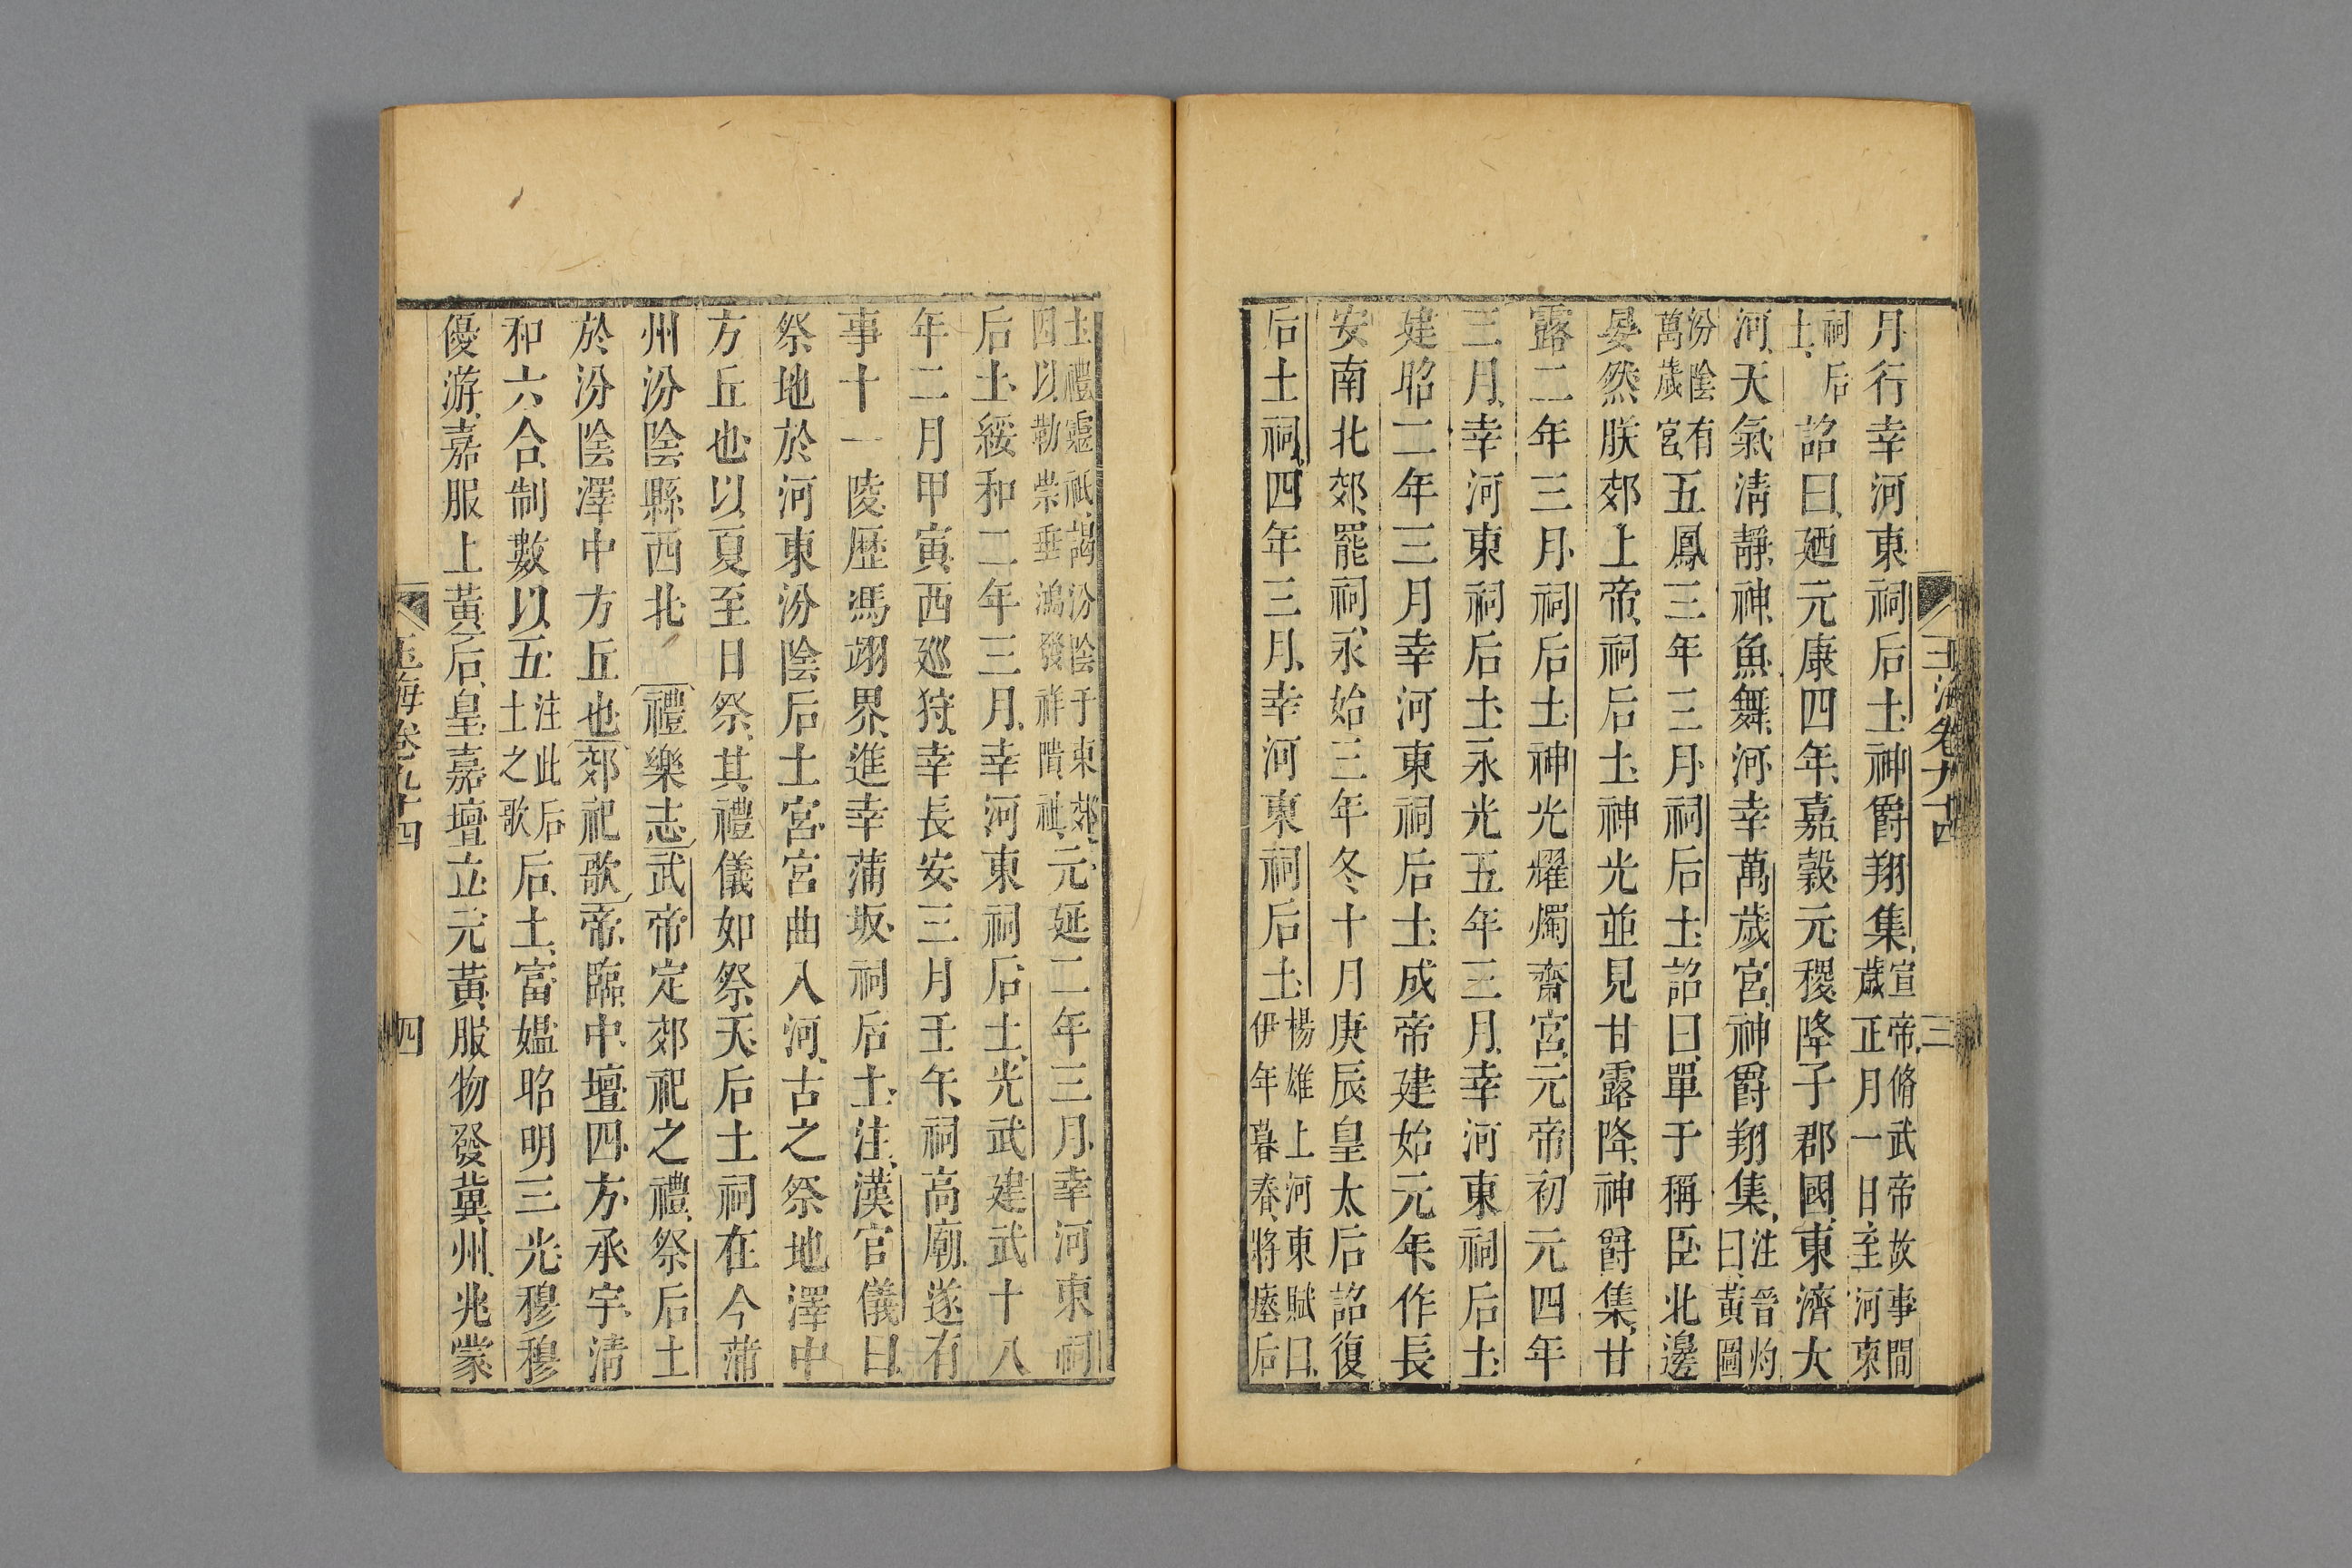 月行幸河東祠后土神爵翔集宣帝脩武帝故事間歲正月一日主河東
祠后土詔曰廼元康四年嘉穀元稷降于郡國東濟大
河天氣清靜神魚舞河幸萬歲宮神爵翔集注晉灼曰黃圖
汾陰有萬歲宮五鳳三年三月祠后土詔曰單于稱臣北邊
晏然朕郊上帝祠后土神光並見甘露降神爵集甘
露二年三月祠后土神光燿燭齋宮元帝初元四年
三月幸河東祠后土永光五年三月幸河東祠后土
建昭二年三月幸河東祠后土成帝建始元年作長
安南北郊罷祠永始三年冬十月庚辰皇太后詔復
后土祠四年三月幸河東祠后土楊雄上河東賦曰伊年暮春將瘞后
玉海卷九十四 三
土禮靈祇謁汾陰于東郊因以勒崇垂鴻發祥隤祉元延二年三月幸河東祠
后土綏和二年三月幸河東祠后土光武建武十八
年二月甲寅西廵狩幸長安三月壬午祠高廟遂有
事十一陵歷馮翊界進幸蒲坂祠后土注漢官儀曰
祭地於河東汾陰后土宮宮曲入河古之祭地澤中
方丘也以夏至日祭其禮儀如祭天后土祠在今蒲
州汾陰縣西北禮樂志武帝定郊祀之禮祭后土
於汾陰澤中方丘也郊祀歌帝臨中壇四方承宇清
和六合制數以五注此后土之歌后土富媼昭明三光穆穆
優游嘉服上黃后皇嘉壇立元黃服物發冀州兆蒙
玉海卷九十四 四